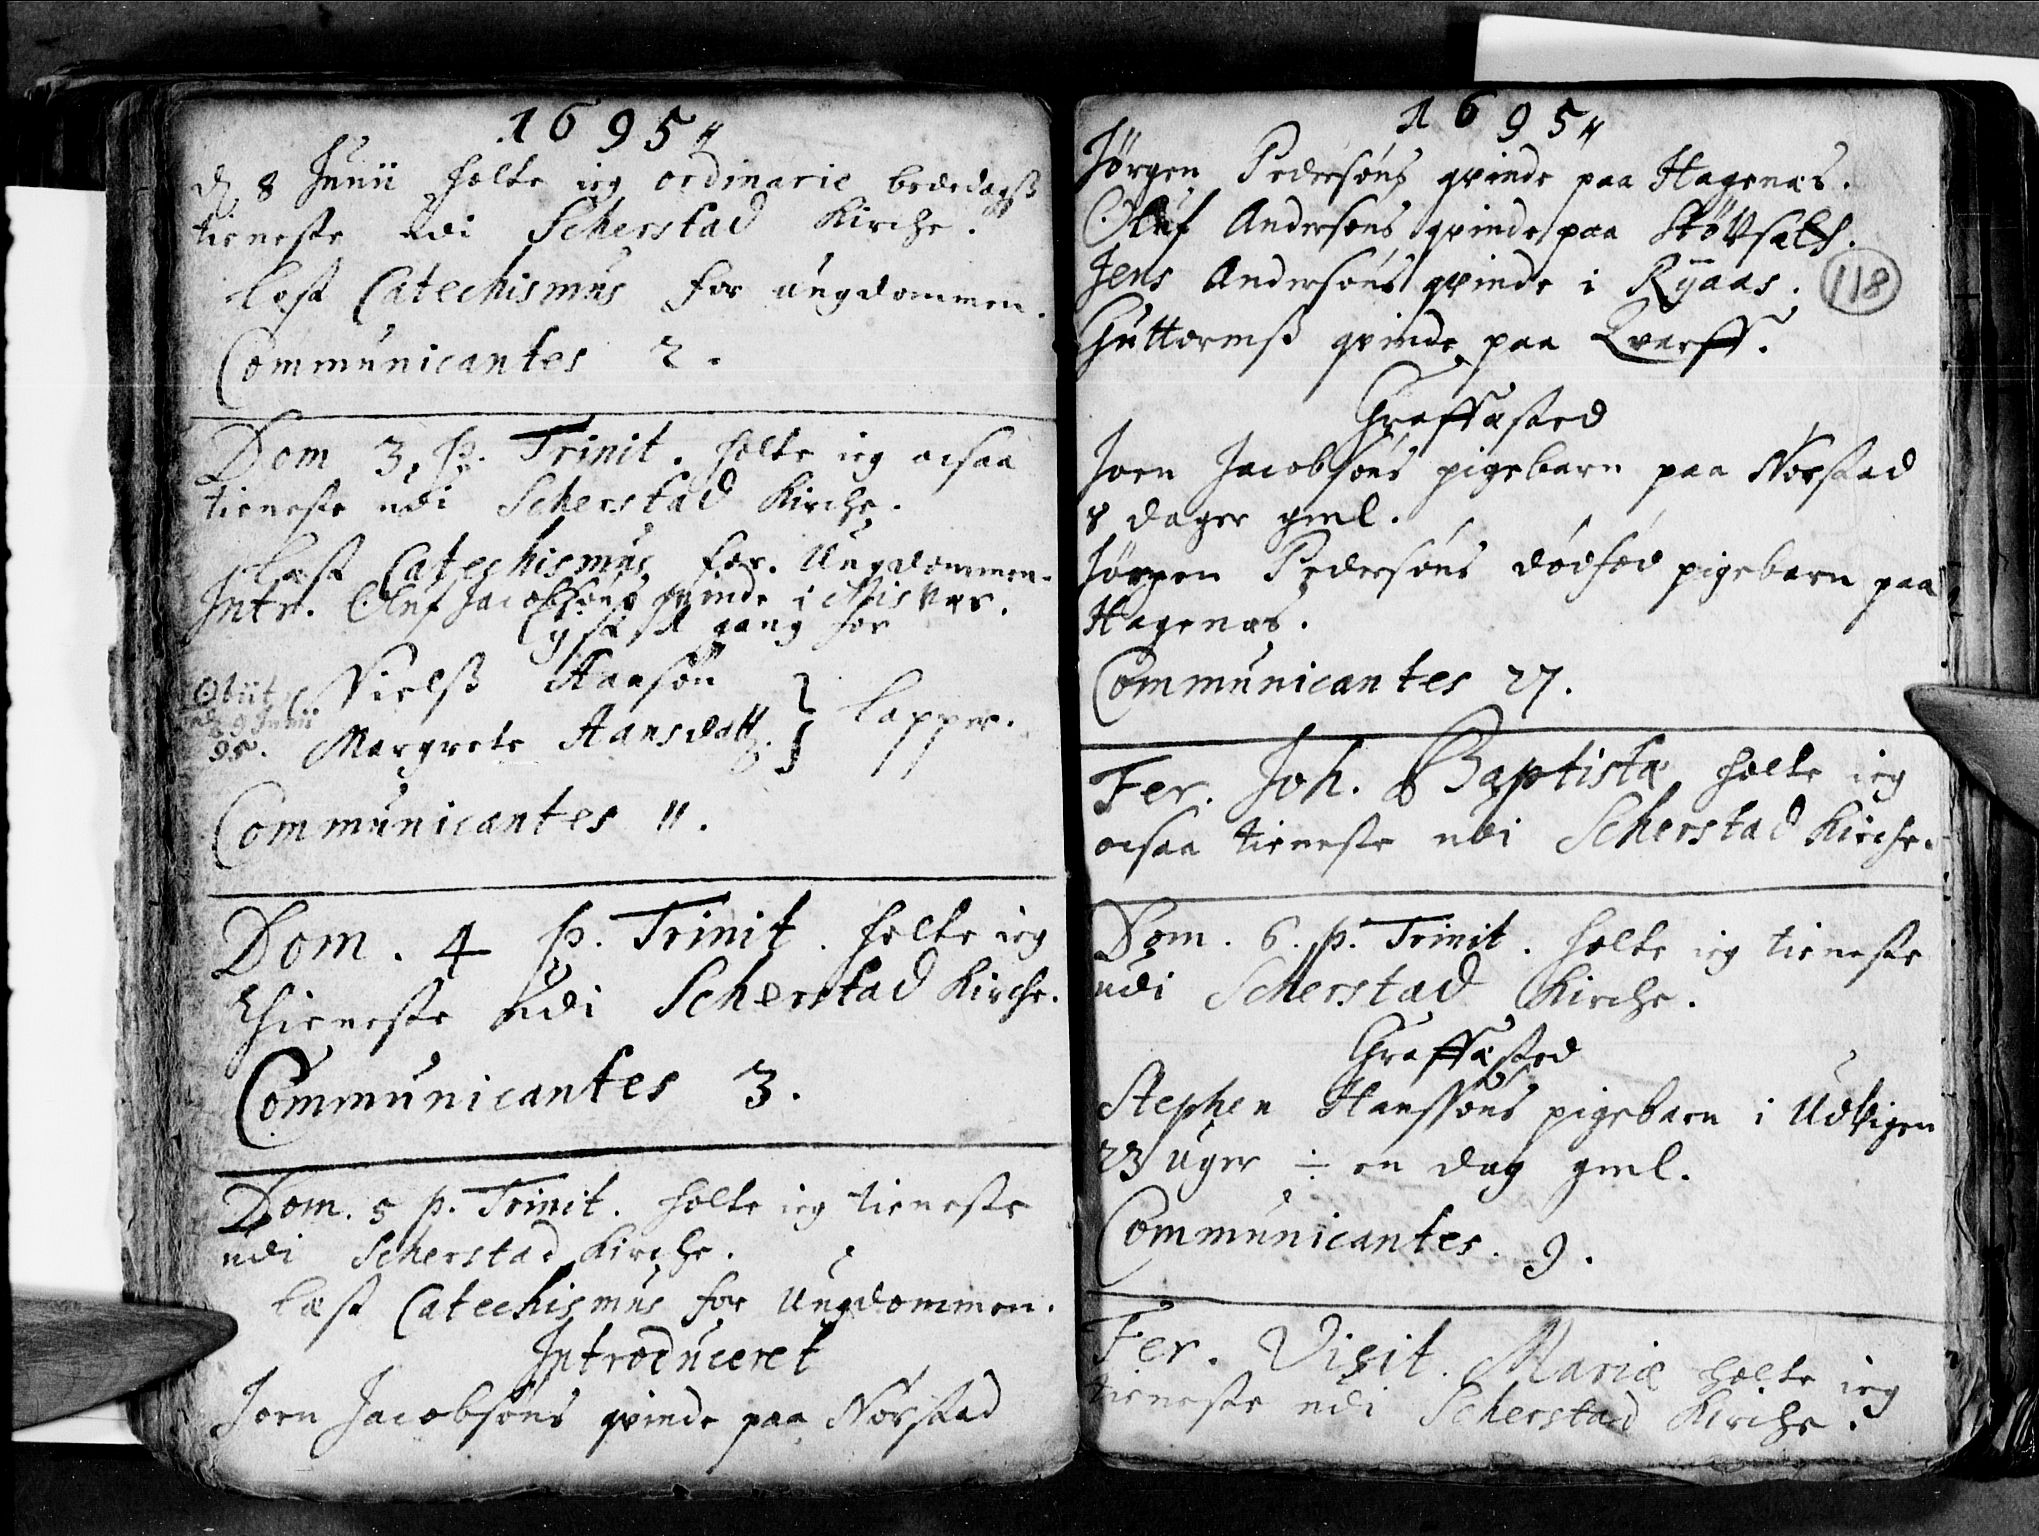 1695
d 8 Junii holte ieg ordinarie bededagß
tieneste udi Scherstad Kirche.
læst Catechismus for ungdommen.
Communicantes 2.
Dom 3. p. Trinit. holte ieg ocsaa
tieneste udi Scherstad Kirche.
læst Catechismus for Ungdommen.
Intr. Oluf Jacobsøns qvinde i Misvær.
Lyst gang for
Obiit Nielß Hansøn
9 Junii
95. Margrete Hansdatt. } lapper.
Communicantes 11.
Dom. 4 p. Trinit. holte ieg
thieneste udi Scherstad Kirche.
Communicantes 3.
Dom. 5 p. Trinit. holte ieg tieneste
udi Scherstad Kirche.
læst Catechismus for Ungdommen.
Introduceret
Joen Jacobsøns qvinde paa Norstad
1695
Jørgen Pedersøns qvinde paa Hagenæs.
Oluf Andersøns qvinde paa
Jens Andersøns qvinde i Ryaas.
118
Guttormß qvinde paa Qvarff.
Graffæsted
Joen Jacobsøns pigebarn paa Norstad
8 dager gml.
Jørgen Pedersøns dødfød pigebarn paa
Hagenæs.
Communicantes 27.
Fer. Joh. Baptistæ holte ieg
ocsaa tieneste udi Scherstad Kirche.
Dom. 6. p. Trinit. holte ieg tieneste
udi Scherstad Kirche.
Graffæsted
Stephen Hanssøns pigebarn i Udvigen
23 uger ÷ en dag gml.
Communicantes. 9.
Fer. Visit. Mariæ holte ieg
tieneste udi Scherstad Kirche.